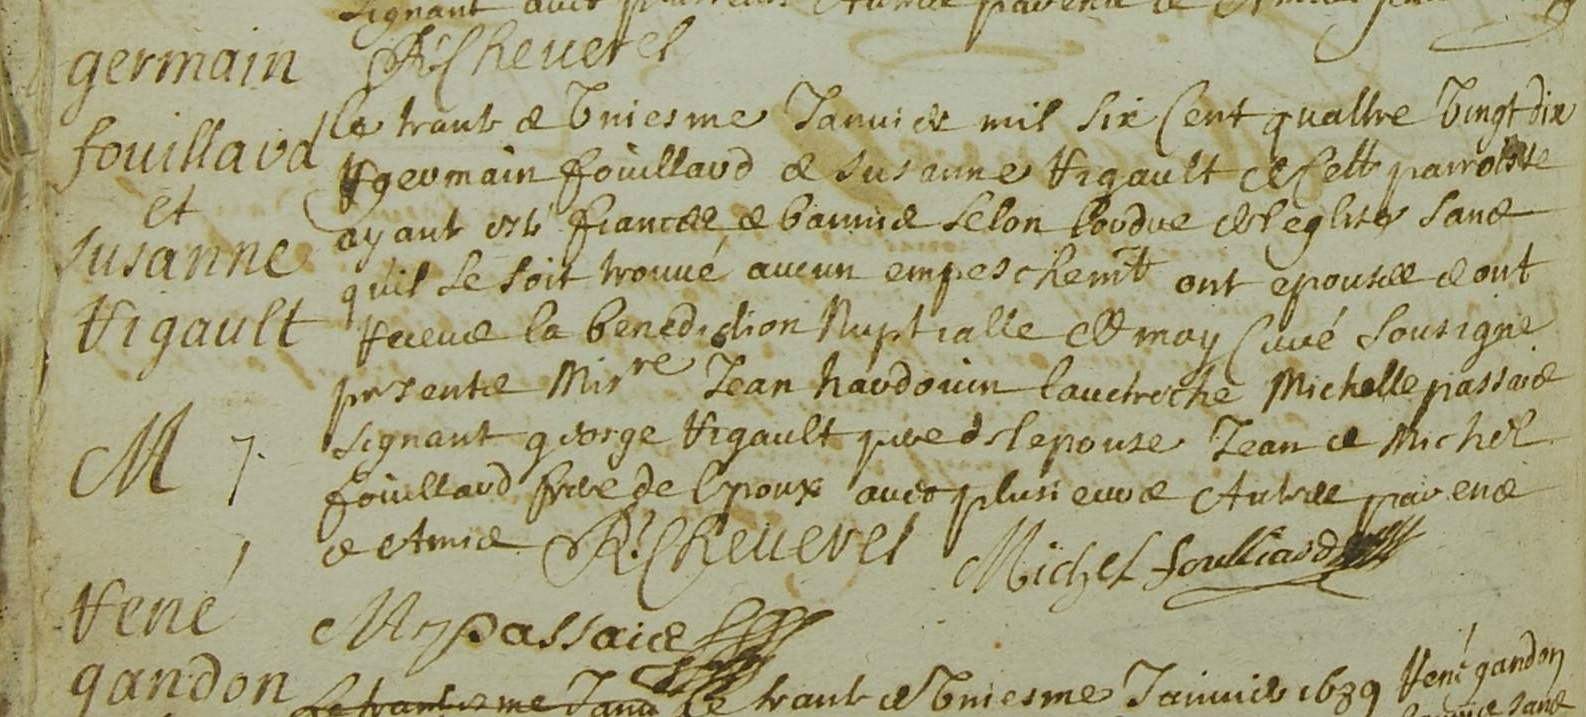 signant avec plusieurs Autres parens et Amis
R. Cheuerel
germain
fouillard
et
susanne
Rigault
M 7
Le trante et Uniesme Januier mil six Cent quattre Vingt dix
germain fouillard et susanne Rigault de Cette parroisse
ayant esté fiancés et bannis selon lordre de leglise sans
quil se soit trouué aucun empeschemt ont epousés et ont
receus la benediction Nuptialle de moy Curé sousigne
presents Misre Jean hardouin Michelle passais
signant george Rigault pere de lepouse Jean et Michel
fouillard frere de lepoux auec plusieurs Autres parens
et Amis R. Cheuerel Michel foulliard
M passais
René
gandon
Le trantiesme Janu Le trante et Uniesme Januier 1689 René gandon